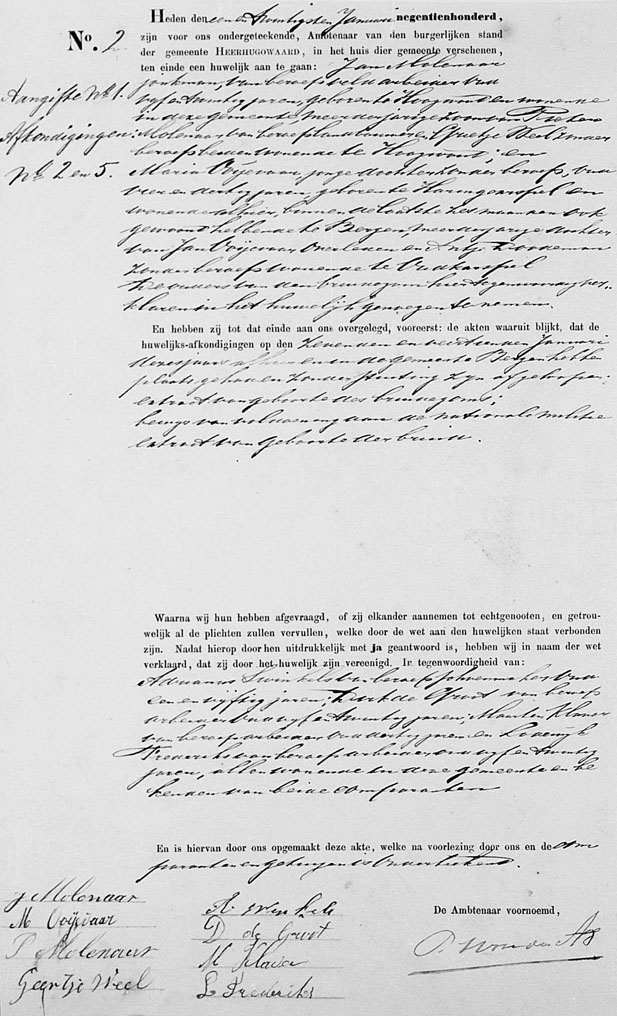 Heden den een en twintigsten Januari negentienhonderd,
No. 2
zijn voor ons ondergeteekende, Ambtenaar van den burgerlijken stand
der gemeente HEERHUGOWAARD, in het huis dier gemeente verschenen,
ten einde een huwelijk aan te gaan: Jan Molenaar
jonkman, van beroep veldarbeider oud
Aangifte No 1.
vijf en twintig jaren, geboren te Hoogwoud en wonende
in deze gemeente, meerderjarige zoon van Pieter
Afkondigingen:
Molenaar van beroep landbouwer en Geertje Weel zonder
beroep beiden wonende te Hoogwoud; en
No 2 en 5.
Maria Ooijevaar, jonge dochter zonder beroep, oud
vier en dertig jaren, geboren te Harengcarspel en
wonende alhier, binnen de laatste zes maanden ook
gewoond hebbende te Bergen, meerderjarige dochter
van Jan Ooijevaar overleden en Antje
zonder beroep wonende te Oudkarspel
De ouders van den bruidegom hier tegenwoordig ver-
klaren in het huwelijk genoegen te nemen.
En hebben zij tot dat einde aan ons overgelegd, vooreerst: de akten waaruit blijkt, dat de
huwelijks-afkondigingen op den zevenden en veertienden Januari
dezes jaars alhier en in de gemeente Bergen hebben
plaats gehad en zonder stuiting zijn afgeloopen;
extract van geboorte des bruidegoms;
bewijs van voldoening aan de nationale militie
extract van geboorte der bruid.
Waarna wij hun hebben afgevraagd, of zij elkander aannemen tot echtgenooten, en getrou-
welijk al de plichten zullen vervullen, welke door de wet aan den huwelijken staat verbonden
zijn. Nadat hierop door hen uitdrukkelijk met ja geantwoord is, hebben wij in naam der wet
verklaard, dat zij door het huwelijk zijn vereenigd. In tegenwoordigheid van:
Adrianus Swinkels van beroep schoenmaker oud
een en vijftig jaren; Dirk de Groot van beroep
arbeider oud vijf en twintig jaren; Maarten Klaver
van beroep arbeider oud dertig jaren en Lodewijk
Frederiks van beroep arbeider oud vijf en twintig
jaren, allen wonende in deze gemeente en be
kenden van beide comparanten
En is hiervan door ons opgemaakt deze akte, welke na voorlezing door ons en de com
paranten en getuigen is onderteekend.
J Molenaar
M Ooijevaar
P Molenaar
Geertje Weel
A. Swinkels
D de Groot
M Klaver
L Frederiks
De Ambtenaar voornoemd,